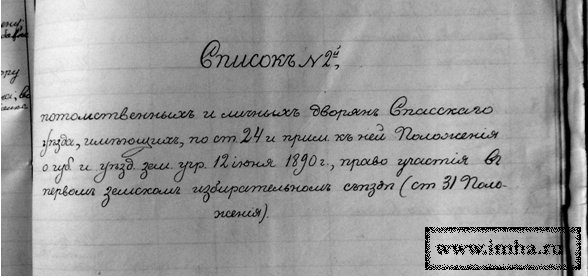 Списокъ №2й,
потомственныхъ и личныхъ дворянъ Спасскаго
уѣзда, имѣющихъ, по ст 24 и прим. къ ней Положенія
о губ. и уѣзд. зем. учр. 12 іюня 1890 г., право участія въ
первомъ земскомъ избирательномъ съѣздѣ (ст 31 Поло-
женія).
www.imha.ru